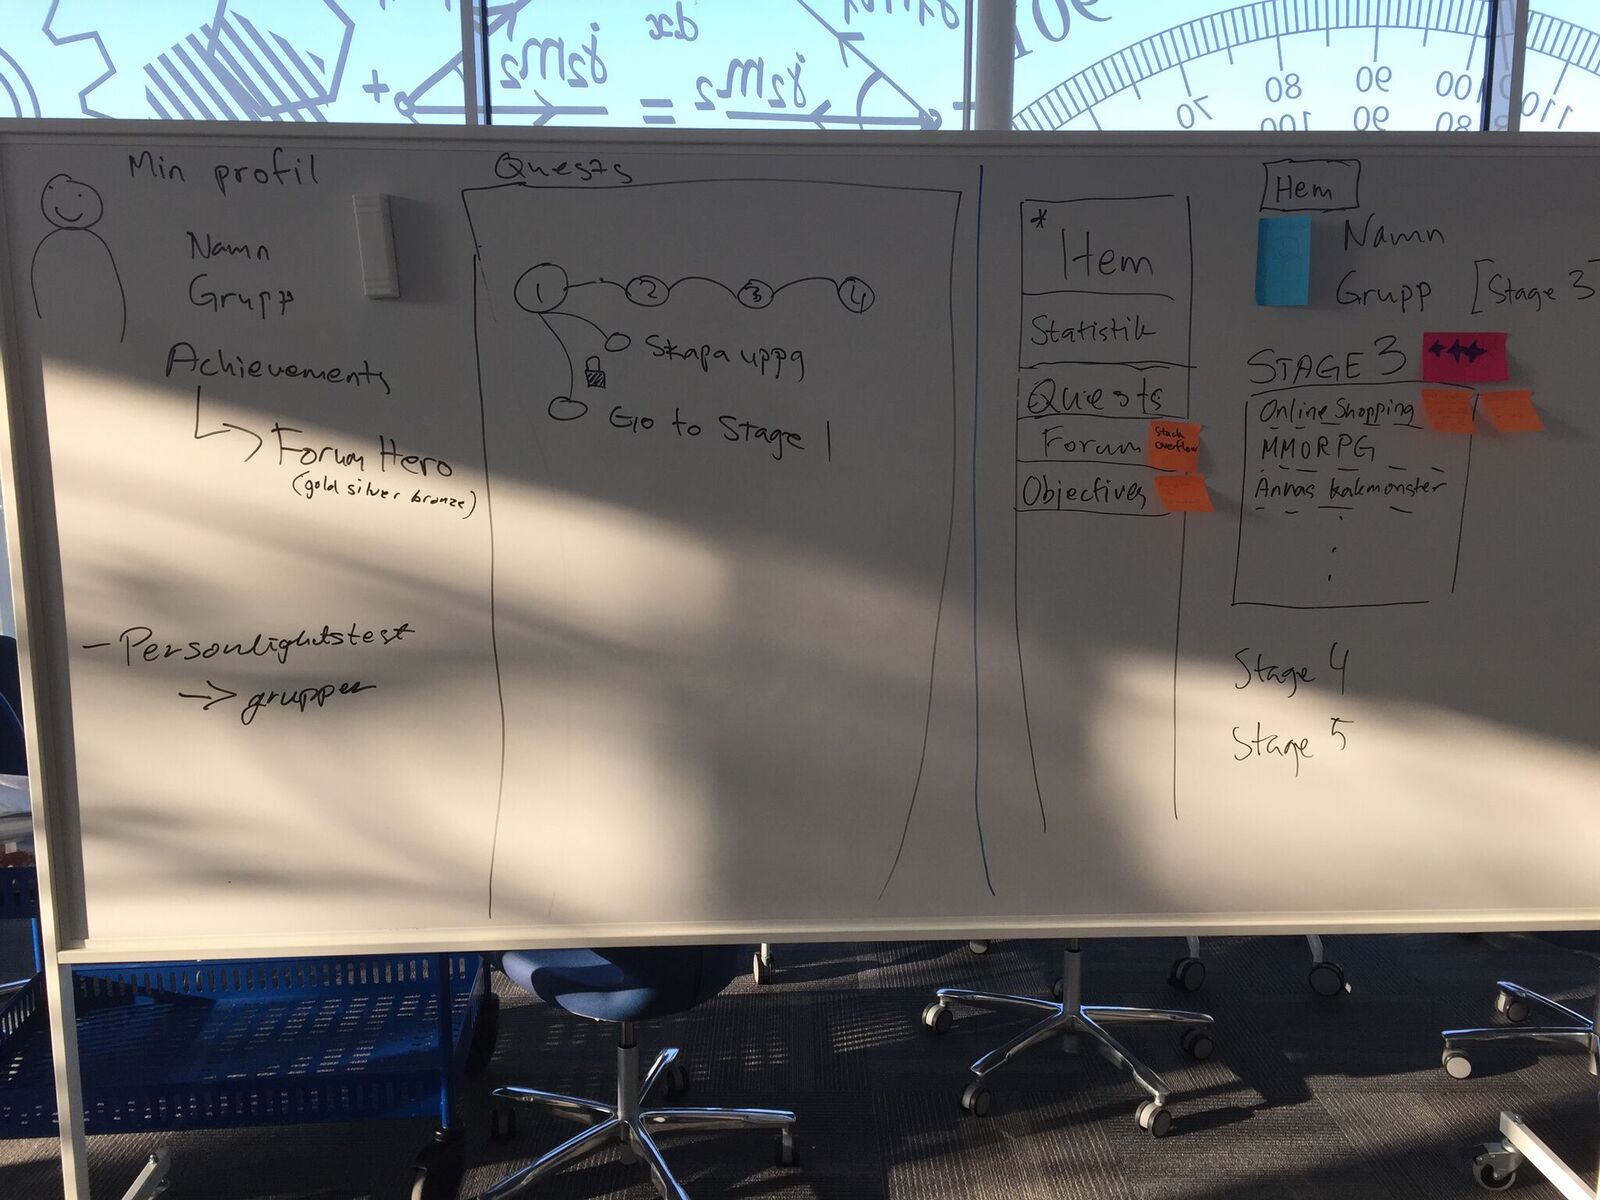 Min profil
Namn
Grupp
Achievements
Forum Hero
(gold silver bronze)
- Personlightstest
→ grupper
Quests
1 2 3 4
Skapa uppg
Go to Stage 1
* Hem
Statistik
Quests
Forum
Stack overflow
Objectives
Hem
Namn
Grupp [Stage 3]
STAGE 3
Online Shopping
MMORPG
Annas kakmonster
Stage 4
Stage 5
+ j2m2 = j2m2
dx
70 80 90 100 110
100 90 80